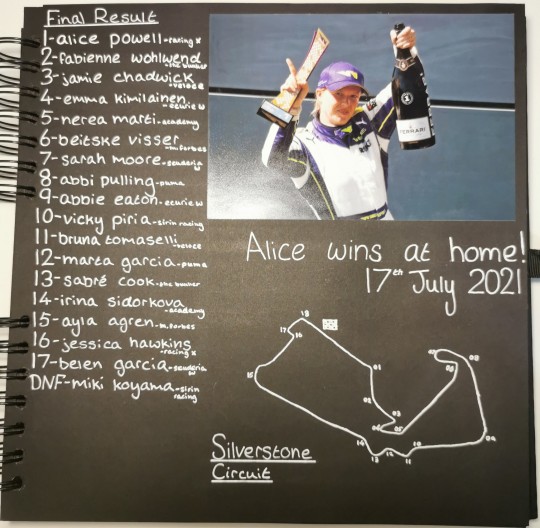 Final Result
1-alice powell-racing x
2-fabienne wohlwend-the bunker
3-jamie chadwick-veloce
4-emma kimilainen-ecurie w
5-nerea marti-academy
6-beitske visser-m.forbes
7-sarah moore-scuderia w
8-abbi pulling-puma
9-abbie eaton-ecurie w
10-vicky piria-sirin racing
11-bruna tomaselli-veloce
12-marta garcia-puma
13-sabré cook-the bunker
14-irina sidorkova-academy
15-ayla agren-m.forbes
16-jessica hawkins-racing x
17-belen garcia-scuderia w
DNF-miki koyama-sirin racing
FERRARI
Alice wins at home!
17th July 2021
18
17
16
15
01
02
03
04
05
06
07
08
09
10
11
12
13
Silverstone
Circuit